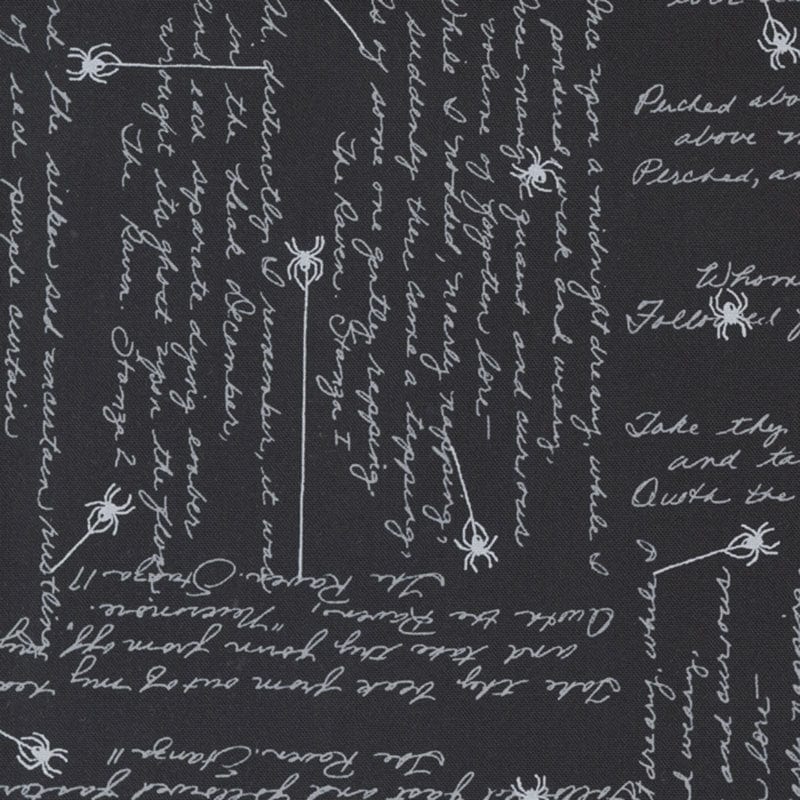 Perched abo
above
Perched, an
Whom
Followed
Take thy
and ta
Quoth the
Once upon a midnight dreary, while I
pondered weak and weary,
Over many quaint and curious
volume of forgotten lore—
While I nodded, nearly napping,
suddenly there came a tapping,
As of some one gently rapping
The Raven. Stanza I
Ah, distinctly I remember, it was
in the bleak December,
And each separate dying ember
wrought its ghost upon the floor
The Raven. Stanza 2
And the silken sad uncertain rustling
of each purple curtain
Followed fast and followed faster
The Raven. Stanza 11
Take thy beak from out of my hea
and take thy form from off my
Quoth the Raven, "Nevermore."
The Raven. Stanza 17
dreary, while I
weary,
and curious
lore—